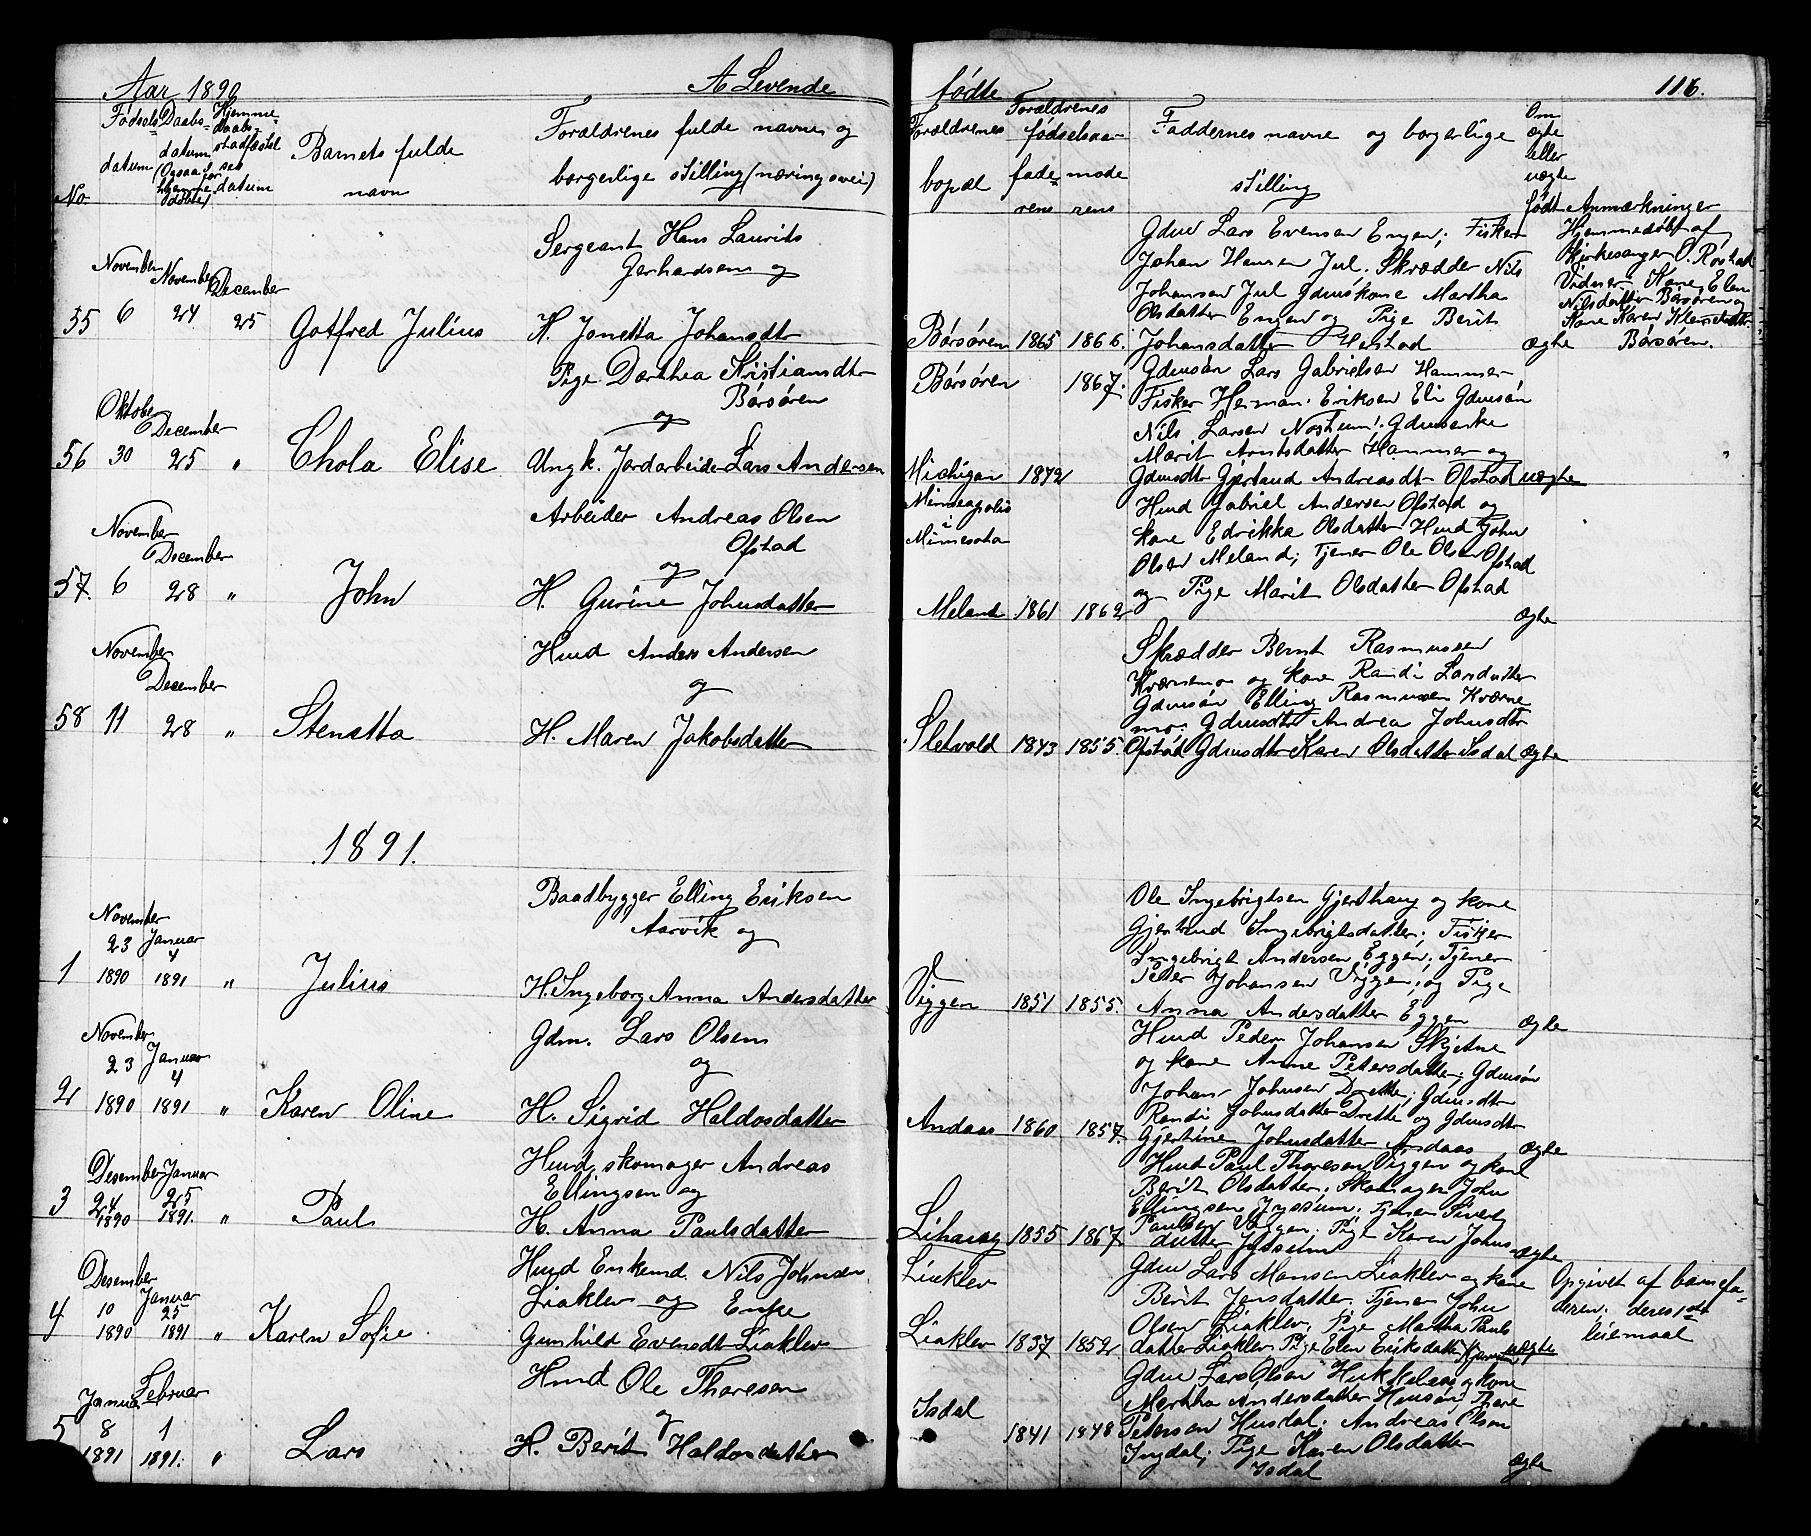 Aar 1890
A Levende
fødte
116.
No.
Fødsels-
datum
Daabs-
datum
(Ogsaa for
hjemme
døbte)
Hjemme-
daabs-
stadfæstel
ses
datum
Barnets fulde
navn
Forældrenes fulde navne og
borgerlige stilling (næringsvei)
Forældrenes
bopæl
Forældrenes
fødselsaar
fade-
rens
mode
rens
Faddernes navne og borgerlige
stilling
Om
ægte
eller
uægte
født
Anmærkninger
November
6
November
24
December
25
55
Gotfred Julius
Sergeant Hans Laurits
Gerhardsen og
H. Jonetta Johansdtr
Børsøren 1865 1866.
Gdm Lars Evensen Engen; Fisker
Johan Hansen Jul. Skrædder Nils
Johansen Jul Gdmskone Martha
Olsdatter Engen og Pige Berit
Johansdatter
ægte
Hjemmedøbt af
Kirkesanger O. Røstad
Vidner Kone Elen
Nilsdatter Børsøren og
Kone Karen
Børsøren.
Oktober
December
56 30 25 "
Chola Elise
Pige Dorthea Kristiansdtr
Børsøren
og
Ungk. Jordarbeider Lars Andersen
Børsøren 1867.
Michigan 1872
Gdmsøn Lars Gabrielsen Hammer
Fisker Herman Eriksen Eli Gdmsøn
Nils Larsen Gdmsenke
Marit Arntsdatter Hammer og
Gdmsdtr Gjertrud Andreasdt Ofstad uægte
November
December
57. 6 28 "
John
Arbeider Andreas Olsen
Ofstad
og
H. Gurine Johnsdatter
Minneapolis
i
Minnesota
Meland 1861 1862
Hmd Gabriel Andersen Ofstad og
kone Edrikka Olsdatter Hmd John
Olsen Meland; Tjener Ole Olsen Ofstad
og Pige Marit Olsdatter Ofstad
ægte
November
December
58 11 28 "
Stenetta
Hmd Anders Andersen
og
H. Maren Jakobsdatter
Sletvold 1843 1855.
Skrædder Bernt Rasmussen
Kværnemo og kone Randi Larsdatter
Gdmsøn Elling Rasmussen Kværne
mo. Gdmsdtr Andrea Johnsdtr
Ofstad Gdmsdtr Karen Olsdatter Isdal ægte
1891.
November
23 Januar
4
1 1890 1891 "
Julius
Baadbygger Elling Eriksen
Aarvik og
H. Ingeborg Anna Andersdatter
Viggen 1851 1855.
Ole Ingebrigtsen Gjerthaug og kone
Gjertrud Ingebrigtsdatter; Fisker
Ingebrigt Andersen Eggen; Tjener
Peter Johansen Viggen; og Pige
Anna Andersdatter Eggen ægte
November
23 Januar
4
2 1890 1891 "
Karen Oline
Gdm. Lars Olsen
og
H. Sigrid Haldosdatter
Andaas 1860 1857.
Hmd Peder Johansen Skjetne
og kone Anne Petersdatter; Gdmsøn
Johan Johnsen Drette; Gdmsdtr
Randi Johnsdatter Drette og Gdmsdtr
Gjertine Johnsdatter Andaas ægte
Desember Januar
3 24 25
1890 1891. "
Paul
Hmd, skomager Andreas
Ellingsen og
H. Anna Paulsdatter
Lihaug 1855 1867
Hmd Paul Thoresen Viggen og kone
Berit Olsdatter. Skomager John
Ellingsen Jyssum; Tjener Sivert
Paulsen Viggen. Pige Karen Johns
datter Jyssum ægte
Desember
Januar
4 10 25
1890 1891 "
Karen Sofie
Hmd Enkemd. Nils Johnsen
Liaklev og Enke
Gunhild Evensdt Liaklev
Liaklev
Liaklev 1837 1852
Gdm Lars Monsen Liaklev og kone
Berit Jensdatter. Tjener John
Olsen Liaklev, Pige Martha Pauls
datter Liaklev Pige Elen Eriksdatter uægte
Opgivet af barnefa-
deren. deres 1ste
leiemaal
Januar Februar
5 8 1
1891 1891. "
Lars
Hmd Ole Thoresen
og
H. Berit Haldosdatter
Isdal
1841 1848
Gdm Lars Olsen og kone
Martha Andersdatter Hmsøn Thore
Petersen Husdal. Andreas Olsen
Ingdal; Pige Karen Olsdatter
Isdal ægte